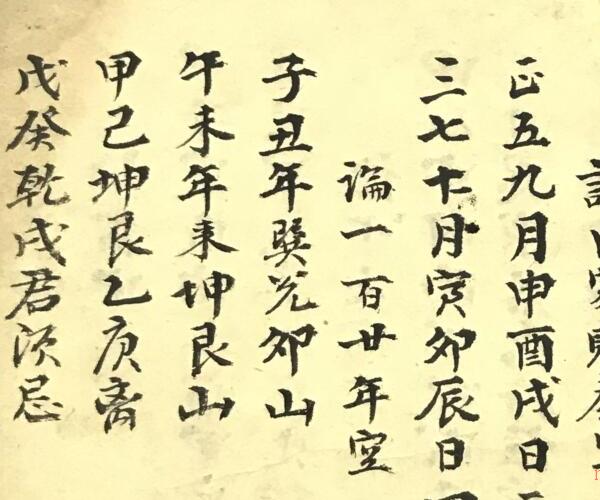 正五九月申酉戌日
三七十月寅卯辰日
論一百廿年空
子丑年巽兌卯山
午未年来坤艮山
甲己坤艮乙庚齊
戊癸乾戌君湏忌